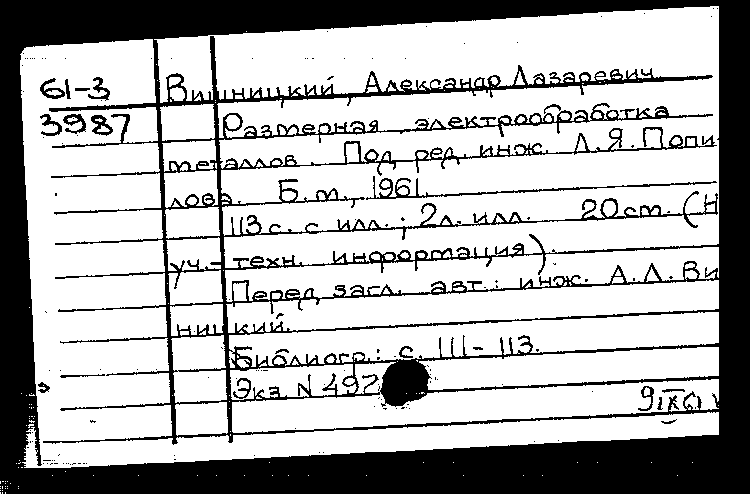 61-3 Вишницкий, Александр Лазаревич.
3987 Размерная электрообработка
металлов. Под ред. инж. Л.Я. Попи-
лова. Б.м., 1961.
113 с. с илл.; 2 л. илл. 20 cm. (Н
уч.-техн. информация).
Перед загл. авт.: инж. А.Л. Ви
ницкий.
Библиогр.: с. 111-113.
Экз. N 497
9 IX 61